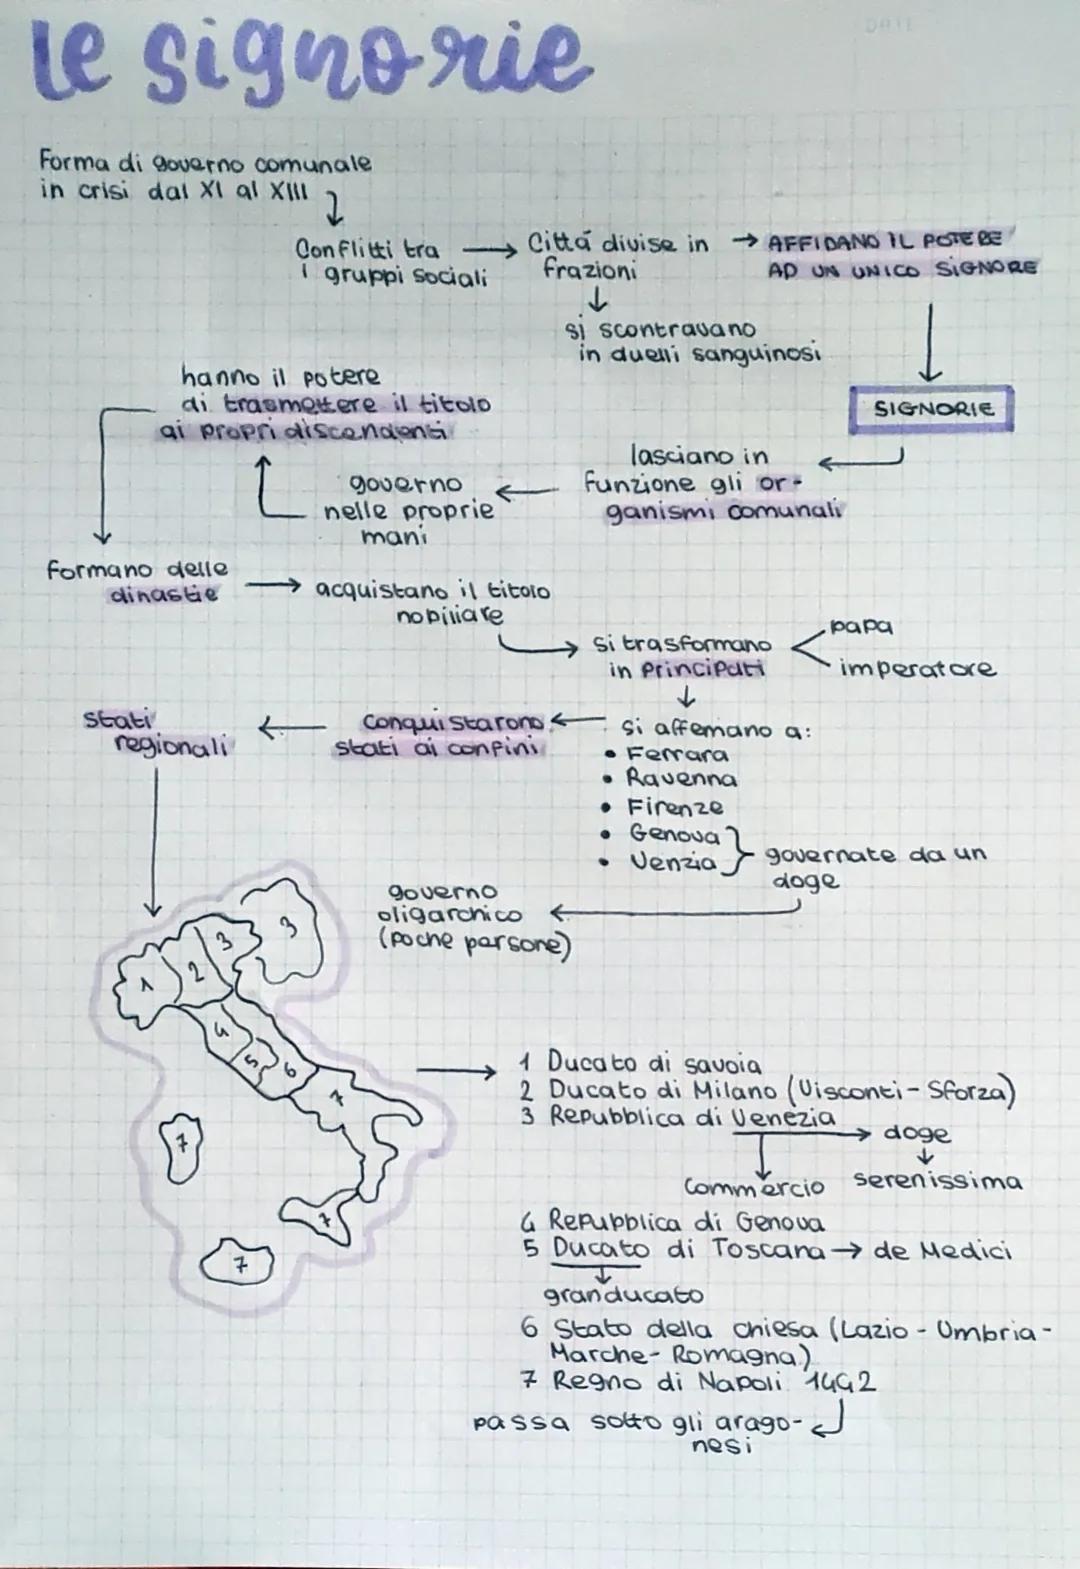 le signorie
DATE
Forma di governo comunale
in crisi dal XI al XIII
Conflitti tra
i gruppi sociali
Cittá divise in
frazioni
AFFIDANO IL POTERE
AD UN UNICO SIGNORE
si scontravano
in duelli sanguinosi
SIGNORIE
lasciano in
funzione gli or-
ganismi comunali
governo
nelle proprie
mani
hanno il potere
di trasmettere il titolo
ai propri discendenti
formano delle
dinastie
acquistano il titolo
nobiliare
si trasformano
in principati
papa
imperatore
si affemano a:
• Ferrara
• Ravenna
• Firenze
• Genova
• Venzia
governate da un
doge
conquistarono
stati ai confini
stati
regionali
governo
oligarchico
(poche persone)
1
2
3
3
4
5
6
7
7
7
7
1 Ducato di savoia
2 Ducato di Milano (Visconti-Sforza)
3 Repubblica di Venezia
doge
commercio
serenissima
4 Repubblica di Genova
5 Ducato di Toscana → de Medici
granducato
6 Stato della chiesa (Lazio-Umbria-
Marche-Romagna)
7 Regno di Napoli 1442
passa sotto gli arago-
nesi